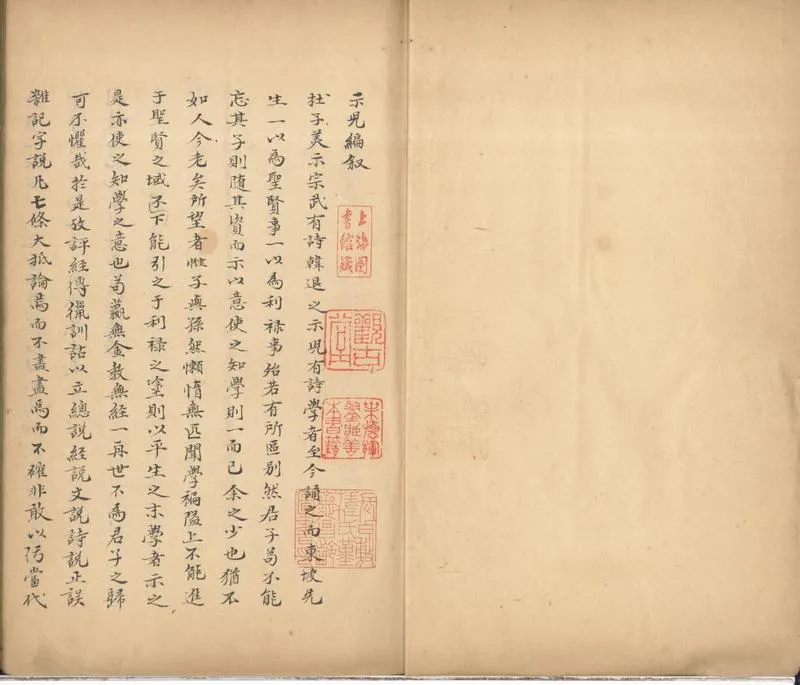 示兒編叙
杜子美示宗武有詩韓退之示兒有詩學者至今誦之而東坡先
生一以為聖賢事一以為利祿事殆若有所區別然君子苟不能
忘其子則随其資而示以意使之知學則一而已余之少也猶不
如人今老矣所望者惟子與孫然懶惰無匹聞學褊隘上不能進
于聖賢之域下不能引之于利祿之塗則以平生之末學者示之
是亦使之知學之意也苟籯無金教無經一再世不為君子之歸
可不懼哉於是攷評經傳獵訓詁以立總說經說文說詩說正誤
雜記字說凡七條大抵論焉而不盡盡焉而不確非敢以污當代
上海圖
書館藏
觀古
堂
朱
本書籍